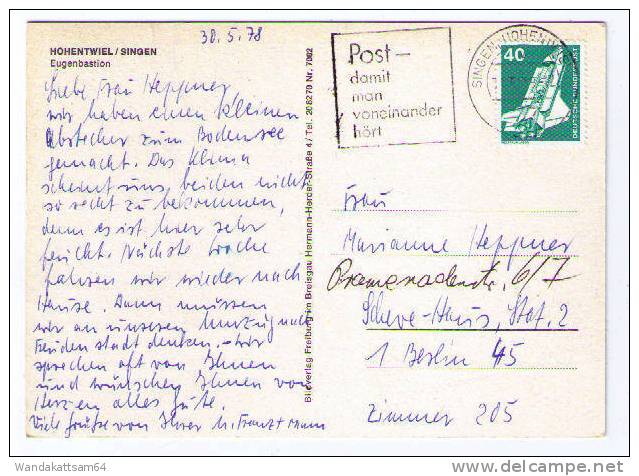 30.5.78
HOHENTWIEL/SINGEN
Eugenbastion
Liebe Frau Heppner
wir haben einen kleinen
Abstecher zum Bodensee
gemacht. Das Klima
scheint uns beiden nicht
so recht zu bekommen,
denn es ist hier sehr
feucht. Nächste Woche
fahren wir wieder nach
Hause. Dann müssen
wir an unseren Umzug nach
Freudenstadt denken. Wir
sprechen oft von Ihnen
und wünschen Ihnen von
Herzen alles Gute.
Viele Grüße von Ihrer
Bildverlag Freiburg im Breisgau Hermann-Herder-Straße 4 / Tel. 208270 Nr. 7002
Post-
damit
man
voneinander
hört
SINGEN
40
DEUTSCHE BUNDESPOST
Frau
Marianne Heppner
Promenadenstr. 6/7
Scheve-Haus, Stat. 2
1 Berlin 45
Zimmer 205
Wandakattsam64
http://www.delcampe.net